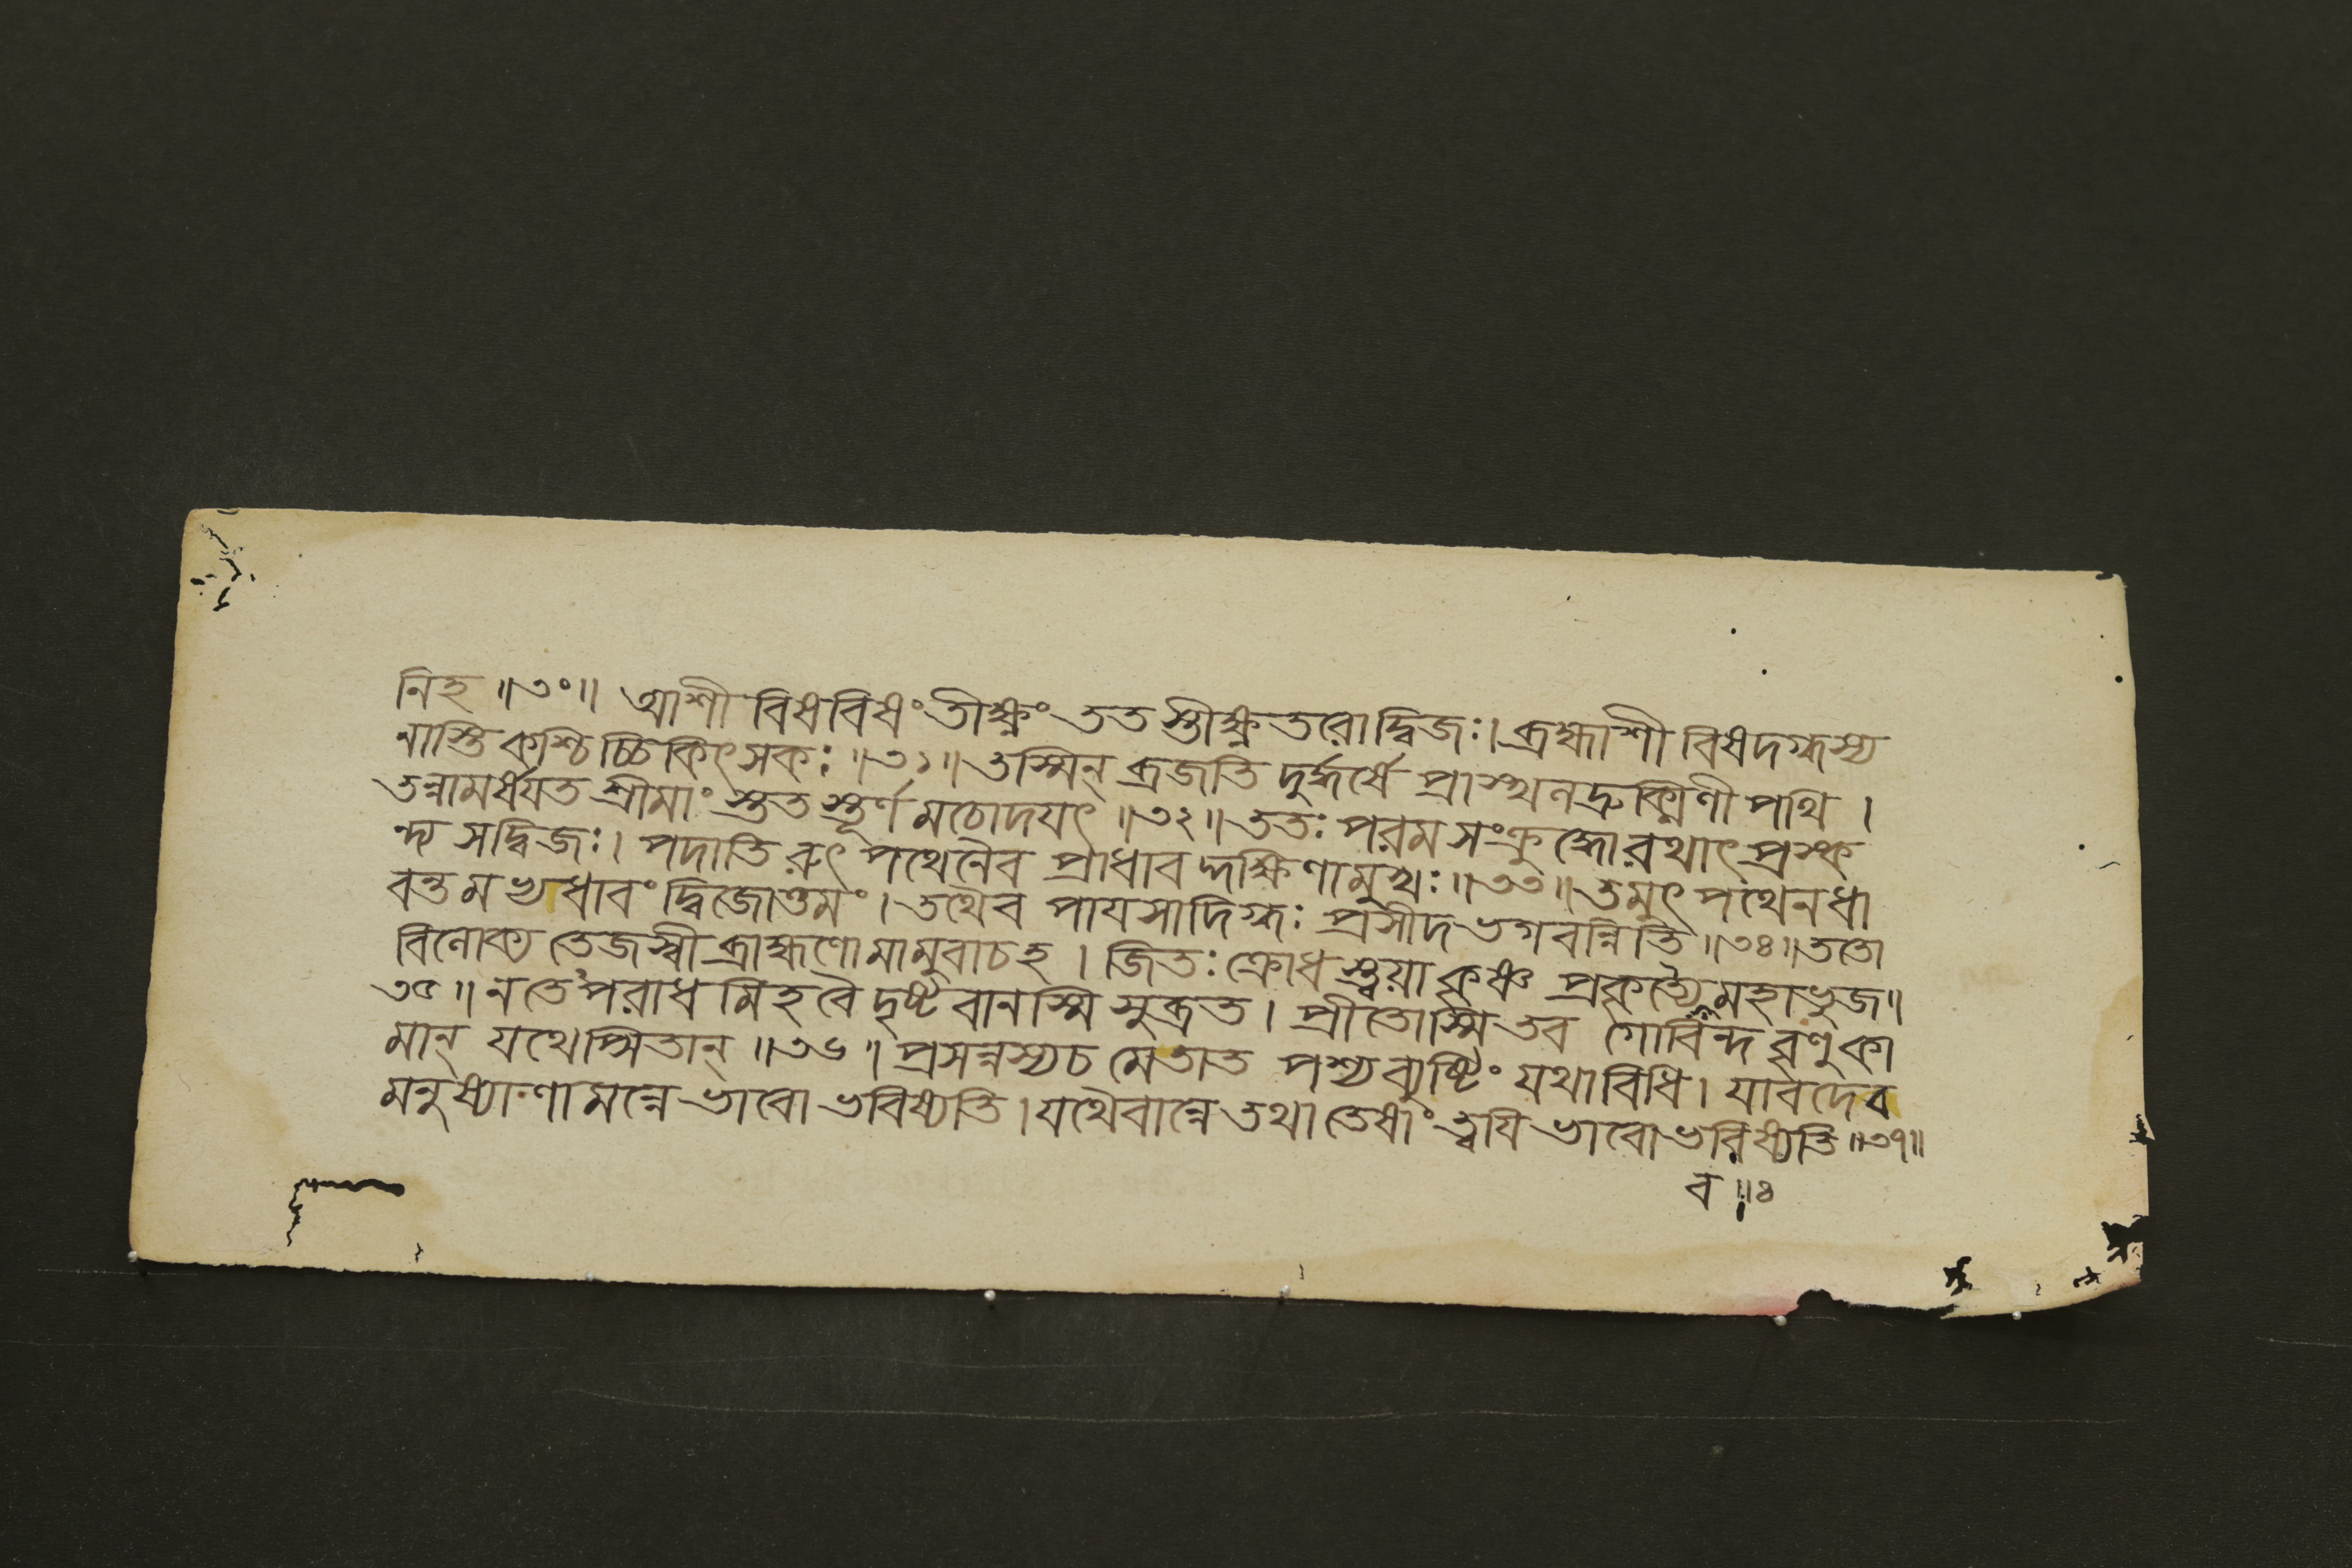 নিহ ॥৩০॥ আশী বিষবিষং তীক্ষ্ণং তত স্তীক্ষ্ণতরোদ্বিজঃ। ব্রহ্মাশী বিষদগ্ধস্য
নাস্তি কশ্চি চ্চিকিৎসকঃ ॥৩১॥ তস্মিন্ ব্রজতি দুর্দ্ধর্ষে প্রাস্খলদ্রুক্মিণী পথি ।
তন্নামর্ষযত শ্রীমাং স্তত স্তূর্ণ মচোদযৎ ॥৩২॥ ততঃ পরম সংক্রুদ্ধোরথাৎ প্রস্ক
ন্দ্য সদ্বিজঃ। পদাতি রুৎ পথেনৈব প্রাধাব দ্দক্ষিণামুখঃ ॥৩৩॥ তমুৎ পথেনধা
বন্তমন্বধাবং দ্বিজোত্তমং । তথৈব পাযসাদিগ্ধঃ প্রসীদ ভগবন্নিতি ॥৩৪॥ ততো
বিলোক্য তেজস্বী ব্রাহ্মণো মামুবাচহ । জিতঃ ক্রোধ স্ত্বয়া কৃষ্ণ প্রকৃত্যৈমহাভুজ॥
৩৫॥ নতেঽপরাধ মিহ বৈ দৃষ্টবানস্মি সুব্রত । প্রীতোস্মি তব গোবিন্দ বৃণুকা
মান্ যথেপ্সিতান্ ॥৩৬॥ প্রসন্নস্যচ মেতাত পশ্যব্যুষ্টিং যথাবিধি । যাবদেব
মনুষ্যাণামন্নে ভাবো ভবিষ্যতি । যথৈবান্নে তথা তেষাং ত্বযি ভাবো ভবিষ্যতি ॥৩৭॥
ব ॥৪